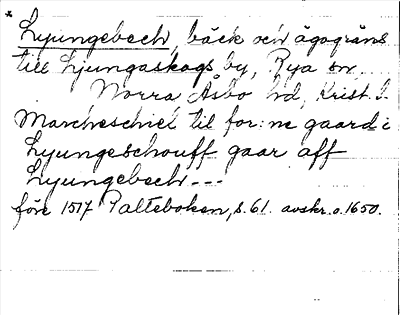 * Lyungebech, bäck och ägogräns
till Ljungaskogs by, Rya sn
Norra Åsbo hd, Krist. l.
Marcheschiel til for:ne gaard i
Lyungeschouff gaar aff
Lyungebech ---
före 1517 Palteboken, s. 61. avskr. o. 1650.